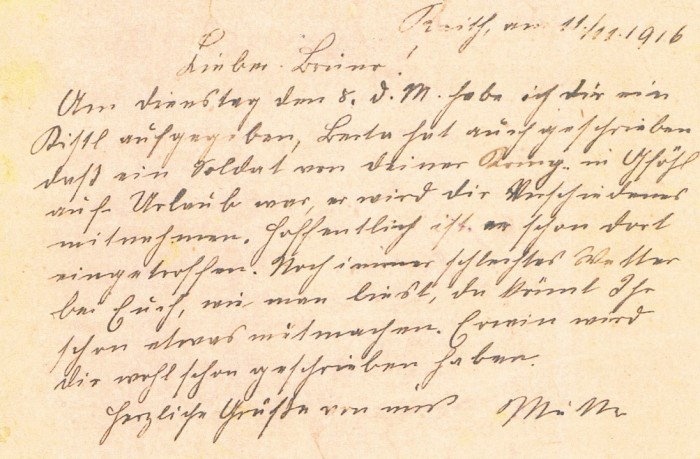 Reith, am 11./11.1916
Lieber Bruno!
Am Dienstag den 8. d. M. habe ich dir ein
Kistl aufgegeben, Berta hat auch geschrieben
daß ein Soldat von deiner in Gföhl
auf Urlaub war, er wird dir Verschiedenes
mitnehmen. Hoffentlich ist er schon dort
eingetroffen. Noch immer schlechtes Wetter
bei Euch, wie man liest, da könnt Ihr
schon etwas mitmachen. Erwin wird
dir wohl schon geschrieben haben.
Herzliche Grüße von uns